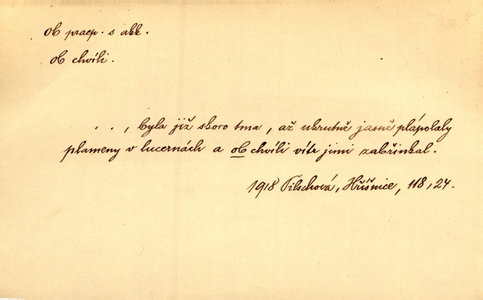 ob praep. s akk.
ob chvíli.
. . , byla již skoro tma, až ukrutně jasně plápolaly
plameny v lucernách a ob chvíli vítr jimi zabřinkal.
1918 Tilschová, Hříšnice, 118, 24.